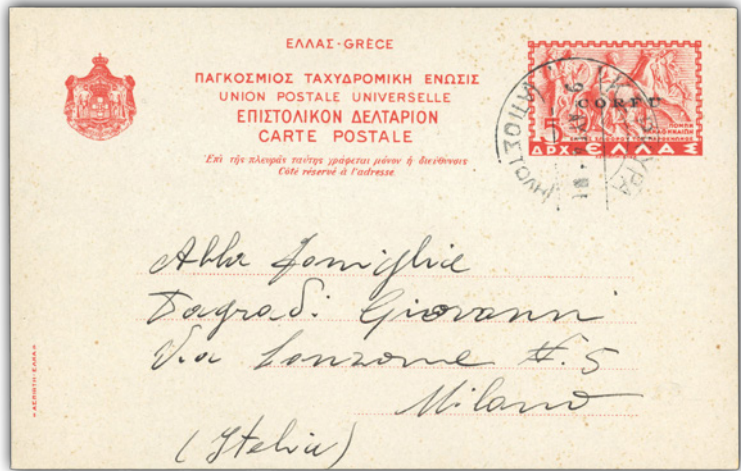 ΕΛΛΑΣ-GRÈCE
ΠΑΓΚΟΣΜΙΟΣ ΤΑΧΥΔΡΟΜΙΚΗ ΕΝΩΣΙΣ
UNION POSTALE UNIVERSELLE
ΕΠΙΣΤΟΛΙΚΟΝ ΔΕΛΤΑΡΙΟΝ
CARTE POSTALE
Ἐπὶ τῆς πλευρᾶς ταύτης γράφεται μόνον ἡ διεύθυνσις
Côté réservé à l'adresse
CORFU
5
ΔΡΧ. ΕΛΛΑΣ
Alla Famiglia
Dagradi Giovanni
Via Lanzone N. 5
Milano
(Italia)